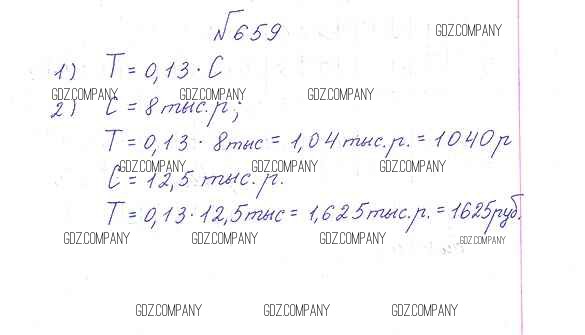 √659 GDZ.COMPANY
1) T = 0,13 · C
GDZ.COMPANY GDZ.COMPANY GDZ.COMPANY
2) C = 8 тыс. р;
T = 0,13 · 8 тыс = 1,04 тыс. р. = 1040 р
GDZ.COMPANY GDZ.COMPANY GDZ.COMPANY
C = 12,5 тыс. р.
T = 0,13 · 12,5 тыс = 1,625 тыс. р. = 1625 руб.
GDZ.COMPANY GDZ.COMPANY GDZ.COMPANY GDZ.COMPANY
GDZ.COMPANY GDZ.COMPANY GDZ.COMPANY